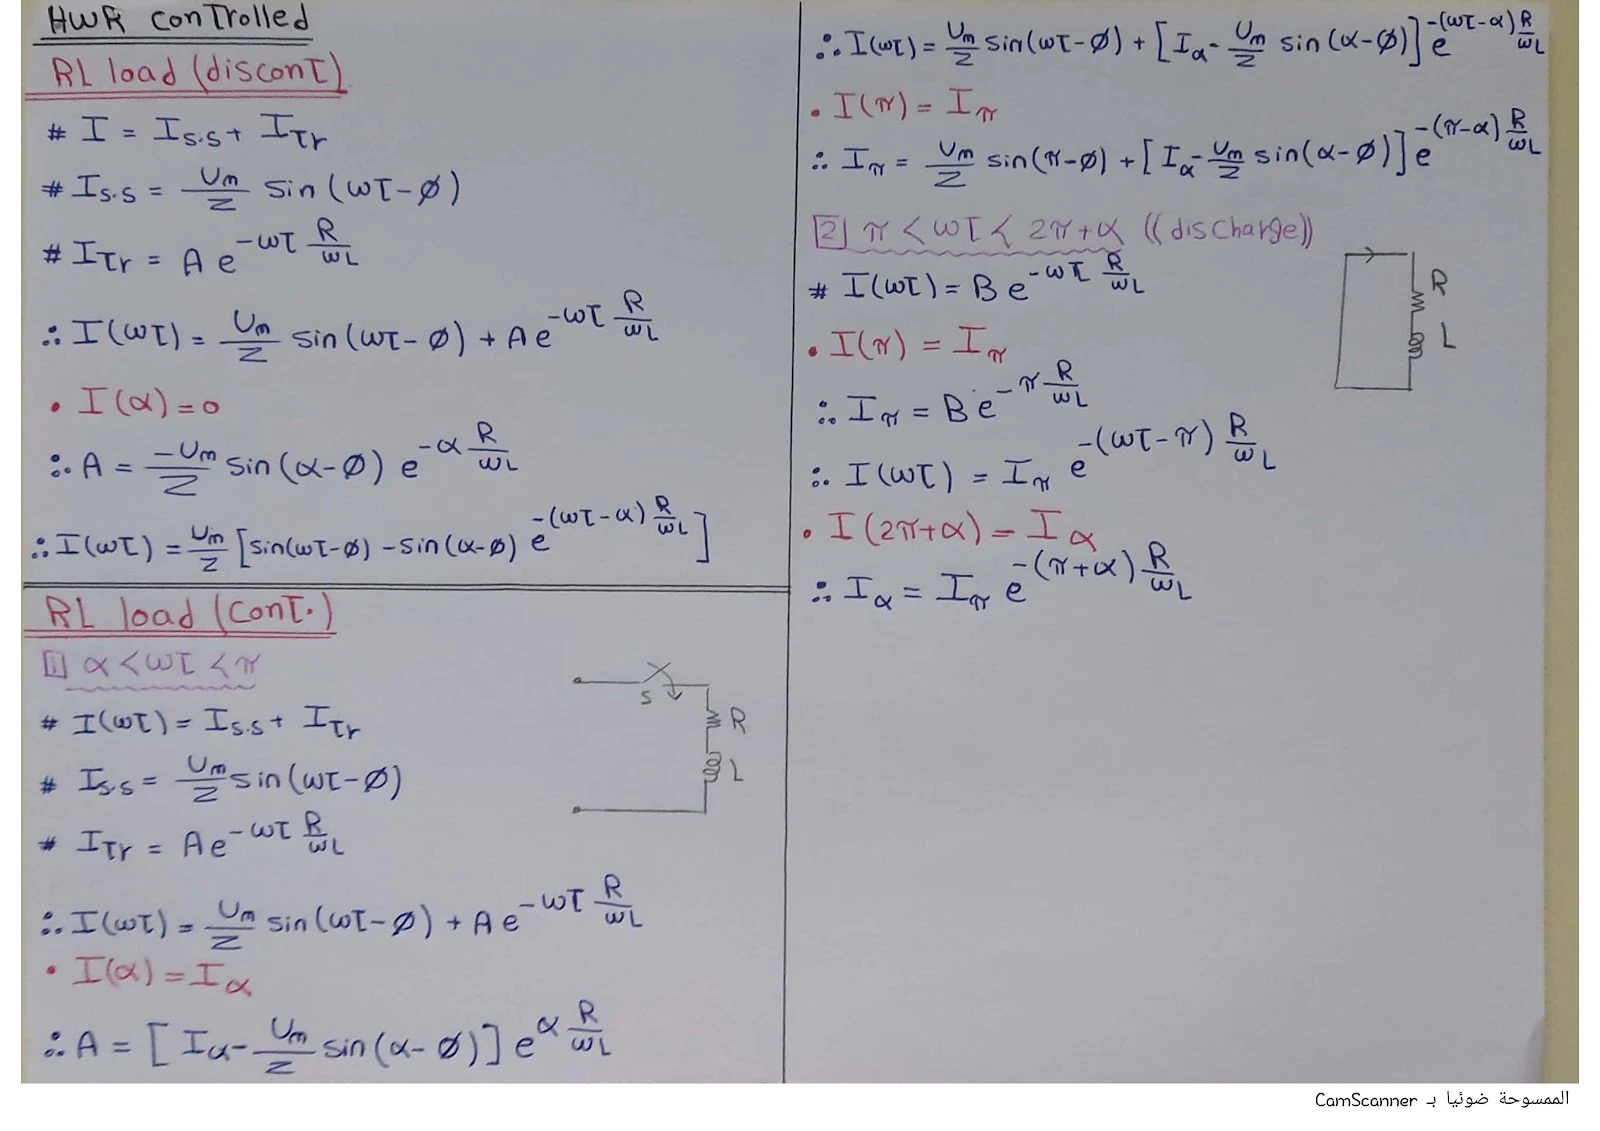 HWR controlled
RL load (discont)
# I = I_{S.S} + I_{Tr}
# I_{S.S} = \frac{Um}{Z} sin(ωt-Ø)
# I_{Tr} = A e^{-ωt \frac{R}{ωL}}
∴ I(ωt) = \frac{Um}{Z} sin(ωt-Ø) + A e^{-ωt \frac{R}{ωL}}
• I(α) = 0
∴ A = \frac{-Um}{Z} sin(α-Ø) e^{-α \frac{R}{ωL}}
∴ I(ωt) = \frac{Um}{Z} [sin(ωt-Ø) - sin(α-Ø) e^{-(ωt-α) \frac{R}{ωL}}]
RL load (cont.)
1 α < ωt < π
# I(ωt) = I_{S.S} + I_{Tr}
# I_{S.S} = \frac{Um}{Z} sin(ωt-Ø)
# I_{Tr} = A e^{-ωt \frac{R}{ωL}}
∴ I(ωt) = \frac{Um}{Z} sin(ωt-Ø) + A e^{-ωt \frac{R}{ωL}}
• I(α) = I_α
∴ A = [I_α - \frac{Um}{Z} sin(α-Ø)] e^{α \frac{R}{ωL}}
S
R
L
∴ I(ωt) = \frac{Um}{Z} sin(ωt-Ø) + [I_α - \frac{Um}{Z} sin(α-Ø)] e^{-(ωt-α) \frac{R}{ωL}}
• I(π) = I_π
∴ I_π = \frac{Um}{Z} sin(π-Ø) + [I_α - \frac{Um}{Z} sin(α-Ø)] e^{-(π-α) \frac{R}{ωL}}
2 π < ωt < 2π+α ((discharge))
# I(ωt) = B e^{-ωt \frac{R}{ωL}}
• I(π) = I_π
∴ I_π = B e^{-π \frac{R}{ωL}}
∴ I(ωt) = I_π e^{-(ωt-π) \frac{R}{ωL}}
• I(2π+α) = I_α
∴ I_α = I_π e^{-(π+α) \frac{R}{ωL}}
R
L
الممسوحة ضوئيا بـ CamScanner